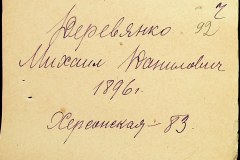 ч
92
Деревянко
Михаил Данилович
1896г.
Херсонская – 83.